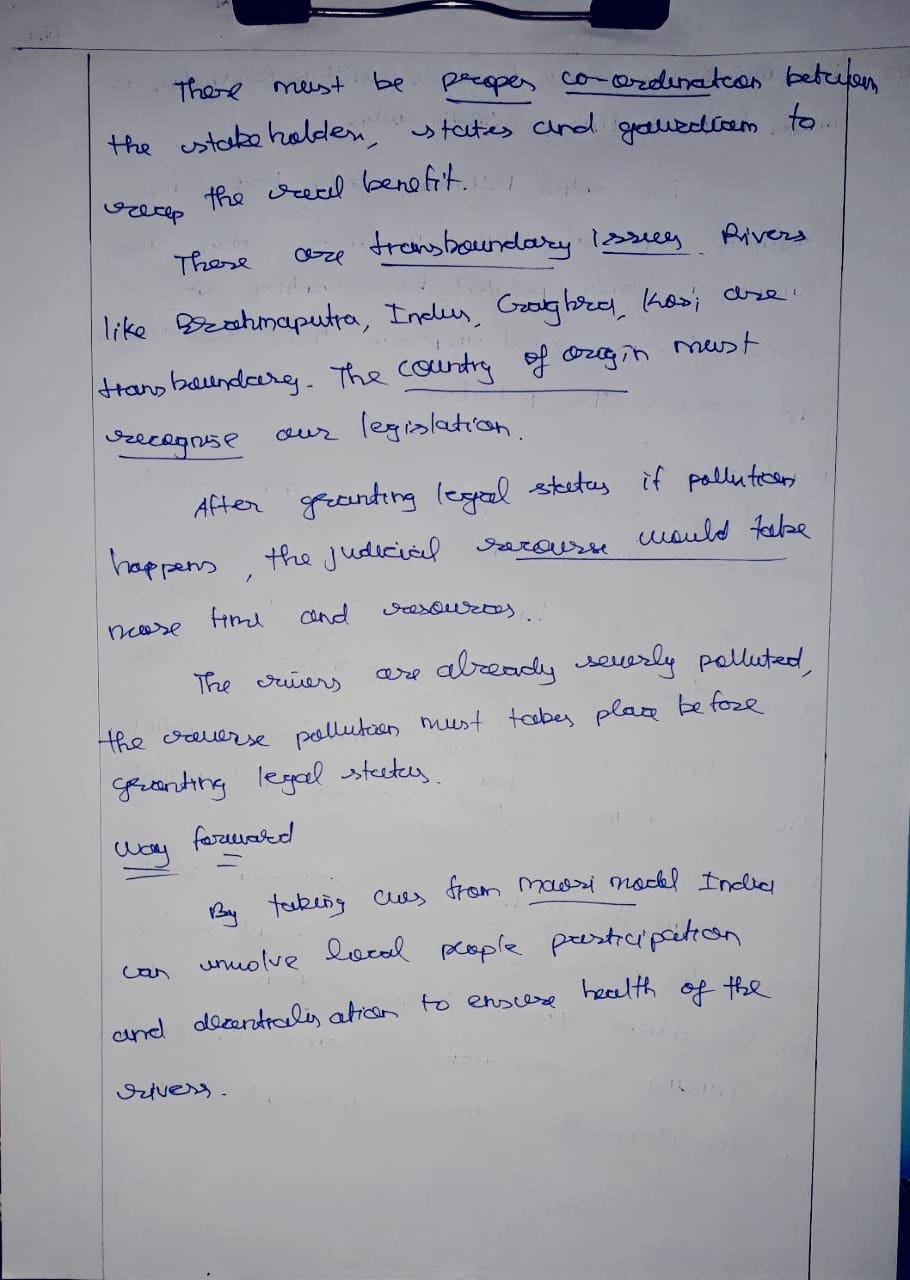 There must be proper co-ordination between
the stakeholders, states and guardian to
reap the real benefit.
There are transboundary issues. Rivers
like Brahmaputra, Indus, Gaghra, Kosi are
transboundary. The country of origin must
recognise our legislation.
After granting legal status if pollution
happens, the judicial recourse would take
more time and resources.
The rivers are already severly polluted,
the reverse pollution must takes place before
granting legal status.
Way forward
By taking cues from maori model India
can involve local people participation
and decentralisation to ensure health of the
rivers.